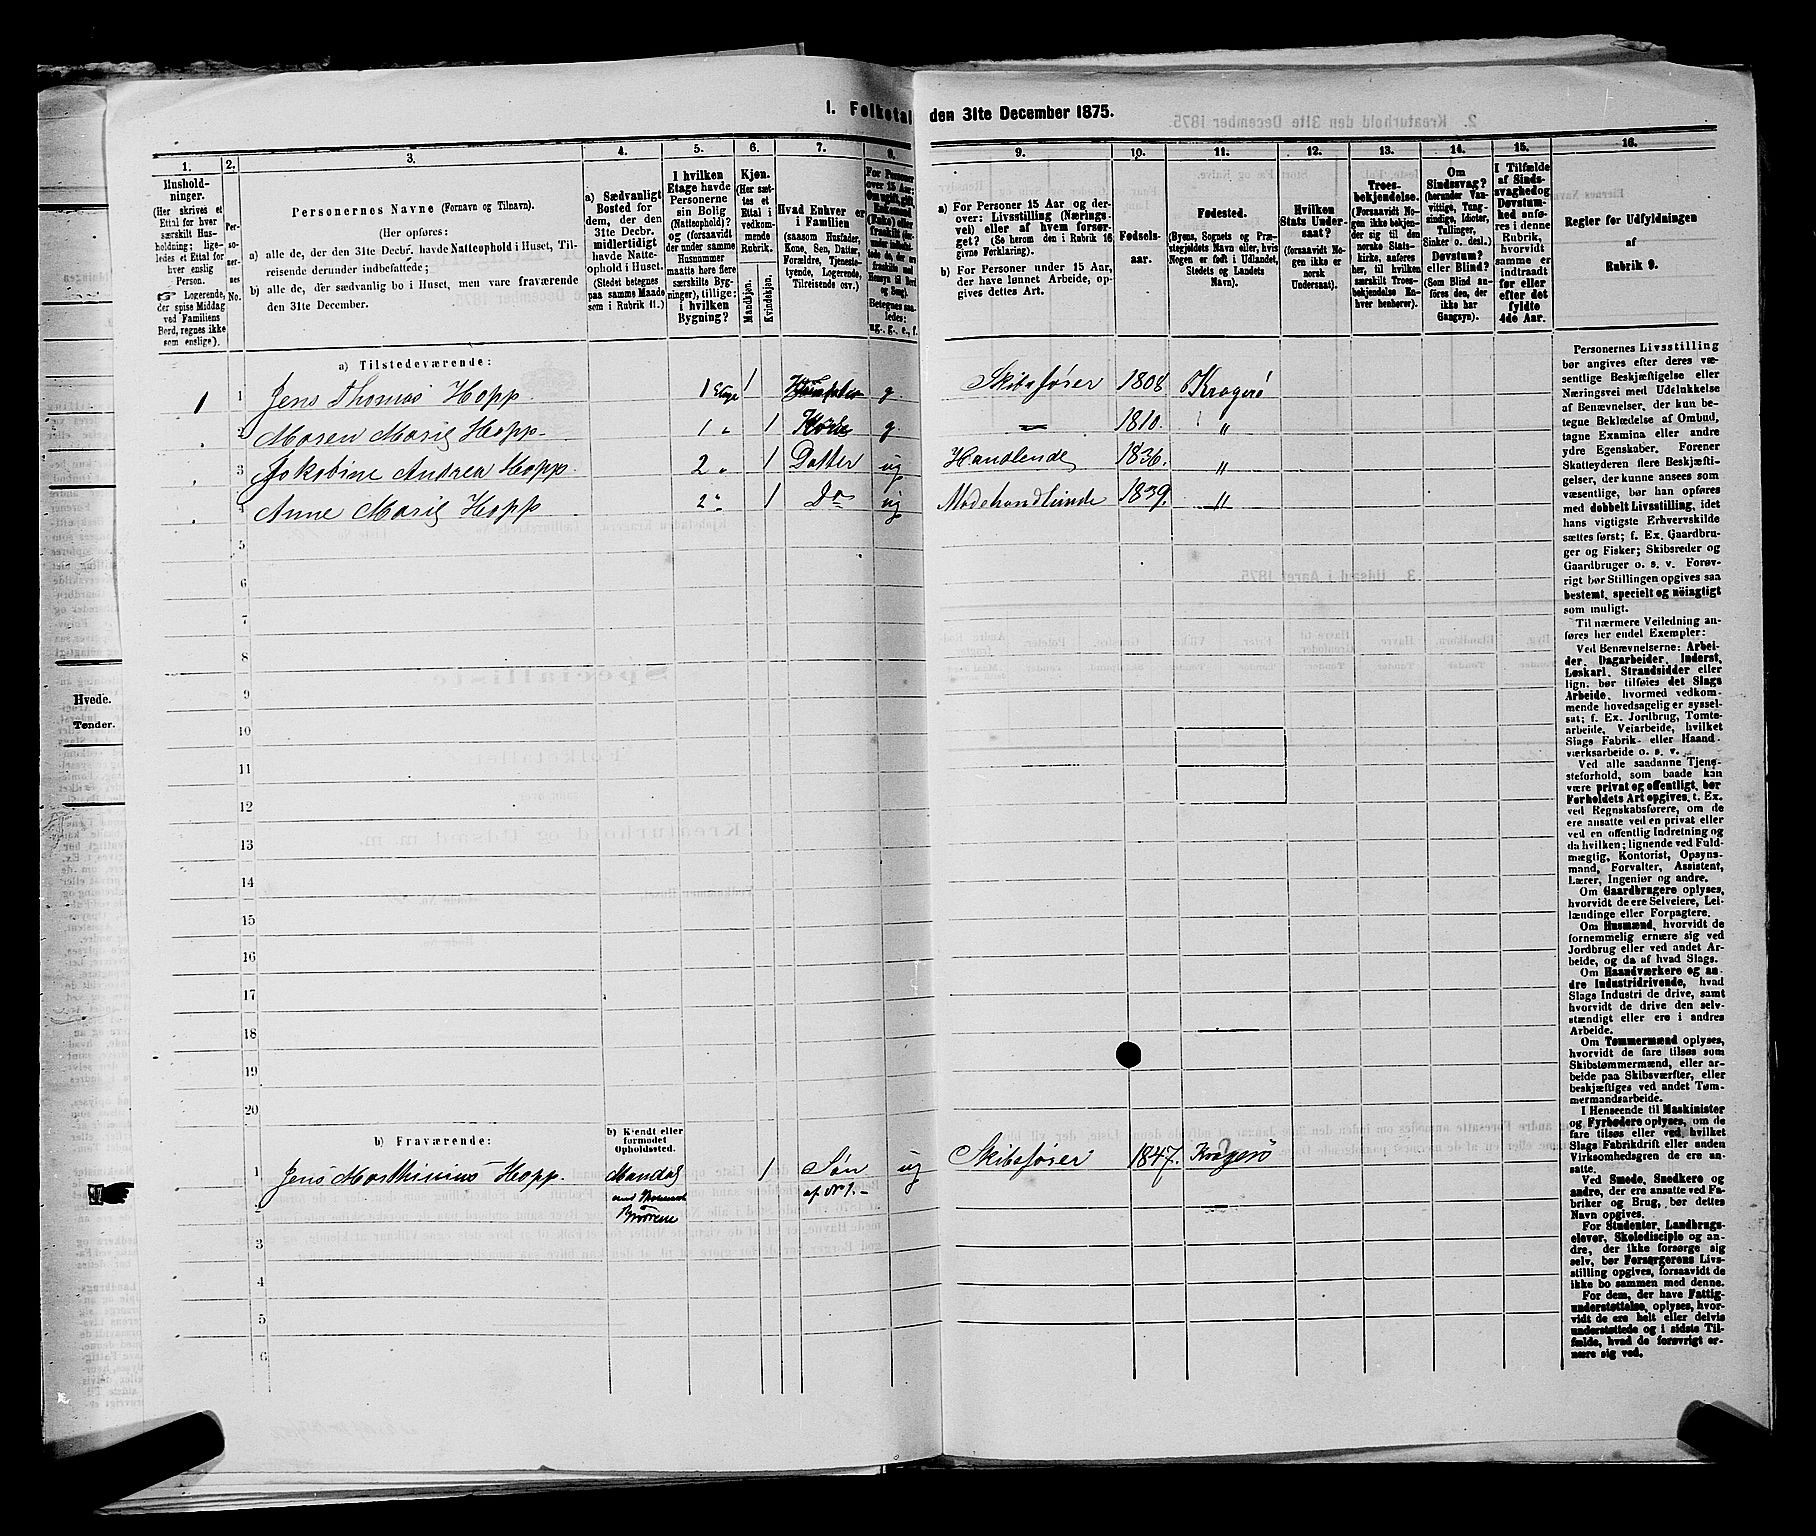 I. Folketal den 31te December 1875.
1. 2. 3. 4. 5. 6. 7. 8. 9. 10. 11. 12. 13. 14. 15. 16.
Hushold-
ninger.
(Her skrives et
Ettal for hver
særskilt Hus-
holdning; lige-
ledes et Ettal for
hver enslig
Person.
☞ Logerende,
der spise Middag
ved Familiens
Bord, regnes ikke
som enslige).
Per-
so-
ner-
nes
No.
Personernes Navne (Fornavn og Tilnavn).
(Her opføres:
a) alle de, der den 31te Decbr. havde Natteophold i Huset, Til-
reisende derunder indbefattede;
b) alle de, der sædvanlig bo i Huset, men vare fraværende
den 31te December.
a) Sædvanligt
Bosted for
dem, der den
31te Decbr.
midlertidigt
havde Natte-
ophold i Huset.
(Stedet betegnes
paa samme Maade
som i Rubrik 11.)
I hvilken
Etage havde
Personerne
sin Bolig
(Natteophold)?
og (forsaavidt
der under samme
Husnummer
maatte høre flere
særskilte Byg-
ninger), tillige:
i hvilken
Bygning?
Kjøn.
(Her sæt-
tes et
Ettal i
vedkom-
mende
Rubrik.
Mandkjøn.
Kvindekjøn.
Hvad Enhver er
i Familien
(saasom Husfader,
Kone, Søn, Datter,
Forældre, Tjeneste-
tyende, Logerende,
Tilreisende osv.)
For Personer
over 15 Aar:
Betegnes saa-
ledes:
ug., g., e., f.
a) For Personer 15 Aar og der-
over: Livsstilling (Nærings-
vei) eller af hvem forsør-
get? (Se herom den i Rubrik 16
givne Forklaring).
b) For Personer under 15 Aar,
der have lønnet Arbeide, op-
gives dettes Art.
Fødsels-
aar.
Fødested.
(Byens, Sognets og Præ-
stegjeldets Navn eller, hvis
Nogen er født i Udlandet,
Stedets og Landets
Navn).
Hvilken
Stats Under-
saat?
(forsaavidt No-
gen ikke er
norsk
Undersaat).
Troes-
bekjendelse.
(Forsaavidt No-
gen ikke bekjen-
der sig til den
norske Stats-
kirke, anføres
her, til hvilken
særskilt Troes-
bekjendelse En-
hver henhører).
Om
Sindssvag?
(herunder Van-
vittige, Tung-
sindige, Idioter,
Tullinger,
Sinker o. desl.)
Døvstum?
eller Blind?
(Som Blind an-
føres den, der
ikke har
Gangsyn).
I Tilfælde
af Sinds-
svaghed og
Døvstum-
hed anfø-
res i denne
Rubrik,
hvorvidt
samme er
indtraadt
før eller
efter det
fyldte
4de Aar.
Regler for Udfyldningen
af
Rubrik 9.
a) Tilstedeværende:
1 1 Jens Thomas Hopp 1 Etage 1 g. Skibsfører 1808 Kragerø
2 Maren Marie Hopp 1 " 1 Kone g. — 1810. "
3 Jakobine Andrea Hopp. 2 " 1 Datter ug Handlende 1836. "
4 Anne Marie Hopp 2 " 1 Do ug Modehandlende 1839. "
5
6
7
8
9
10
11
12
13
14
15
16
17
18
19
20
b) Fraværende:
b) Kjendt eller
formodet
Opholdssted.
1 Jens Marthinius Hopp. Mandal 1 Søn af No 1. — ug Skibsfører 1847. Kragerø
2 Brørene
3
4
5
6
Personernes Livsstilling
bør angives efter deres væ-
sentlige Beskjæftigelse eller
Næringsvei med Udelukkelse
af Benævnelser, der kun be-
tegne Beklædelse af Ombud,
tagne Examina eller andre
ydre Egenskaber. Forener
Skatteyderen flere Beskjæfti-
gelser, der kunne ansees som
væsentlige, bør han opføres
med dobbelt Livsstilling, idet
hans vigtigste Erhvervskilde
sættes først; f. Ex. Gaardbru-
ger og Fisker; Skibsreder og
Gaardbruger o. s. v. Forøv-
rigt bør Stillingen opgives saa
bestemt, specielt og nøiagtigt
som muligt.
Til nærmere Veiledning an-
føres her endel Exempler:
Ved Benævnelserne: Arbei-
der, Dagarbeider, Inderst,
Løskarl, Strandsidder eller
lign. bør tilføies det Slags
Arbeide, hvormed vedkom-
mende hovedsagelig er syssel-
sat; f. Ex. Jordbrug, Tomte-
arbeide, Veiarbeide, hvilket
Slags Fabrik- eller Haand-
værksarbeide o. s. v.
Ved alle saadanne Tjene-
steforhold, som baade kan
være privat og offentligt, bør
Forholdets Art opgives, t. Ex.
ved Regnskabsførere, om de
ere ansatte ved en privat eller
ved en offentlig Indretning og
da hvilken; lignende ved Fuld-
mægtig, Kontorist, Opsyns-
mand, Forvalter, Assistent,
Lærer, Ingeniør og andre.
Om Gaardbrugere oplyses,
hvorvidt de ere Selveiere, Lei-
lændinge eller Forpagtere.
Om Husmænd, hvorvidt de
fornemmelig ernære sig ved
Jordbrug eller ved andet Ar-
beide, og da af hvad Slags.
Om Haandværkere og an-
dre Industridrivende, hvad
Slags Industri de drive, samt
hvorvidt de drive den selv-
stændigt eller ere i andres
Arbeide.
Om Tømmermænd oplyses,
hvorvidt de fare tilsøs som
Skibstømmermænd, eller ar-
beide paa Skibsværfter, eller
beskjæftiges ved andet Tøm-
mermandsarbeide.
I Henseende til Maskinister
og Fyrbødere oplyses, om de
fare tilsøs eller ved, hvilket
Slags Fabrikdrift eller anden
Virksomhedsgren de ere an-
satte.
Ved Smede, Snedkere og
andre, der ere ansatte ved Fa-
briker og Brug, bør dettes
Navn opgives.
For Studenter, Landbrugs-
elever, Skoledisciple og an-
dre, der ikke forsørge sig
selv, bør Forsørgerens Livs-
stilling opgives, forsaavidt de
ikke bo sammen med denne.
For dem, der have Fattig-
understøttelse, oplyses, hvor-
vidt de ere helt eller delvis
understøttede og i sidste Til-
fælde, hvad de forøvrigt er-
nære sig ved.
Hvede.
Tønder.